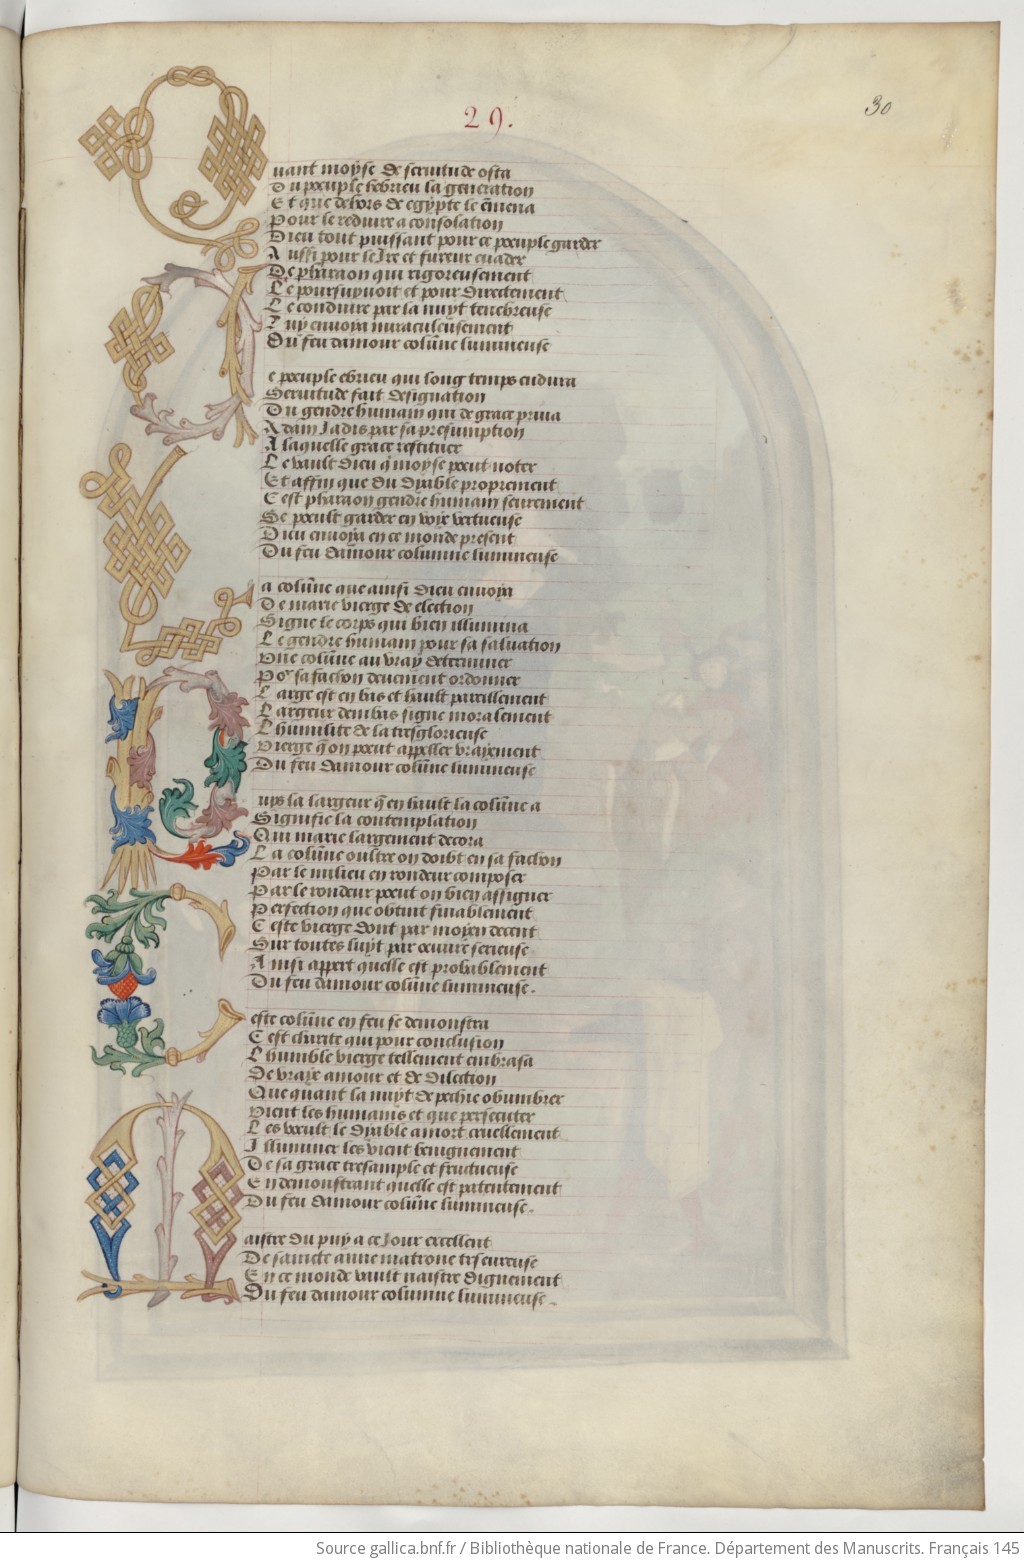 29.
30
Quant moyse de seruitude osta
Du peuple hebrieu la generation
Et que dehors de egypte le ẽmena
Pour le reduire a consolation
Dieu tout puissant pour ce peuple garder
Aussi pour le Ire et fureur euader
De pharaon qui rigoreusement
Le poursuyuoit et pour directement
Le conduire par la nuyt tenebreuse
Luy enuoya miraculeusement
Du feu damour colũne lumineuse
Le peuple ebrieu qui long temps endura
Seruitude fait designation
Du gendre humain qui de grace priua
Adam Jadis par sa presumption
A laquelle grace restituer
Le vault dieu q̃ moyse peut noter
Et affin que du dyable proprement
Cest pharaon gendre humain seurement
Se peult garder en voye vertueuse
Dieu enuoya en ce monde present
Du feu damour columne lumineuse
La colũne que ainsi dieu enuoya
De marie vierge de election
Signe le corps qui bien illumina
Le gendre humain pour sa saluation
Vne colũne au vray determiner
Por sa fachon deuement ordonner
Large est en bas et hault pareillement
Largeur dembas signe moralement
Lhumilite de la tresglorieuse
Vierge q̃ on peut appeller vrayement
Du feu damour colũne lumineuse
Puys la largeur q̃ en hault la colũne a
Signifie la contemplation
Qui marie largement decora
La colũne oultre on doibt en sa fachon
Par le milieu en rondeur composer
Par le rondeur peut on bien assigner
Perfection que obtint finablement
Ceste vierge dont par moyen decent
Sur toutes luyt par œuure serieuse
Ainsi appert quelle est probablement
Du feu damour colũne lumineuse.
Ceste colũne en feu se demonstra
Cest charite qui pour conclusion
Lhumble vierge tellement embrasa
De vraye amour et de dilection
Que quant la nuyt de pechie obumbrer
Vient les humains et que persecuter
Les veult le dyable a mort cruellement
Illuminer les vient benignement
De sa grace tresample et fructueuse
En demonstrant quelle est patentement
Du feu damour colũne lumineuse.
Maistre du puy a ce Jour excellent
De saincte anne matrone treseureuse
En ce monde vault naistre dignement
Du feu damour columne lumineuse.
Source gallica.bnf.fr / Bibliothèque nationale de France. Département des Manuscrits. Français 145